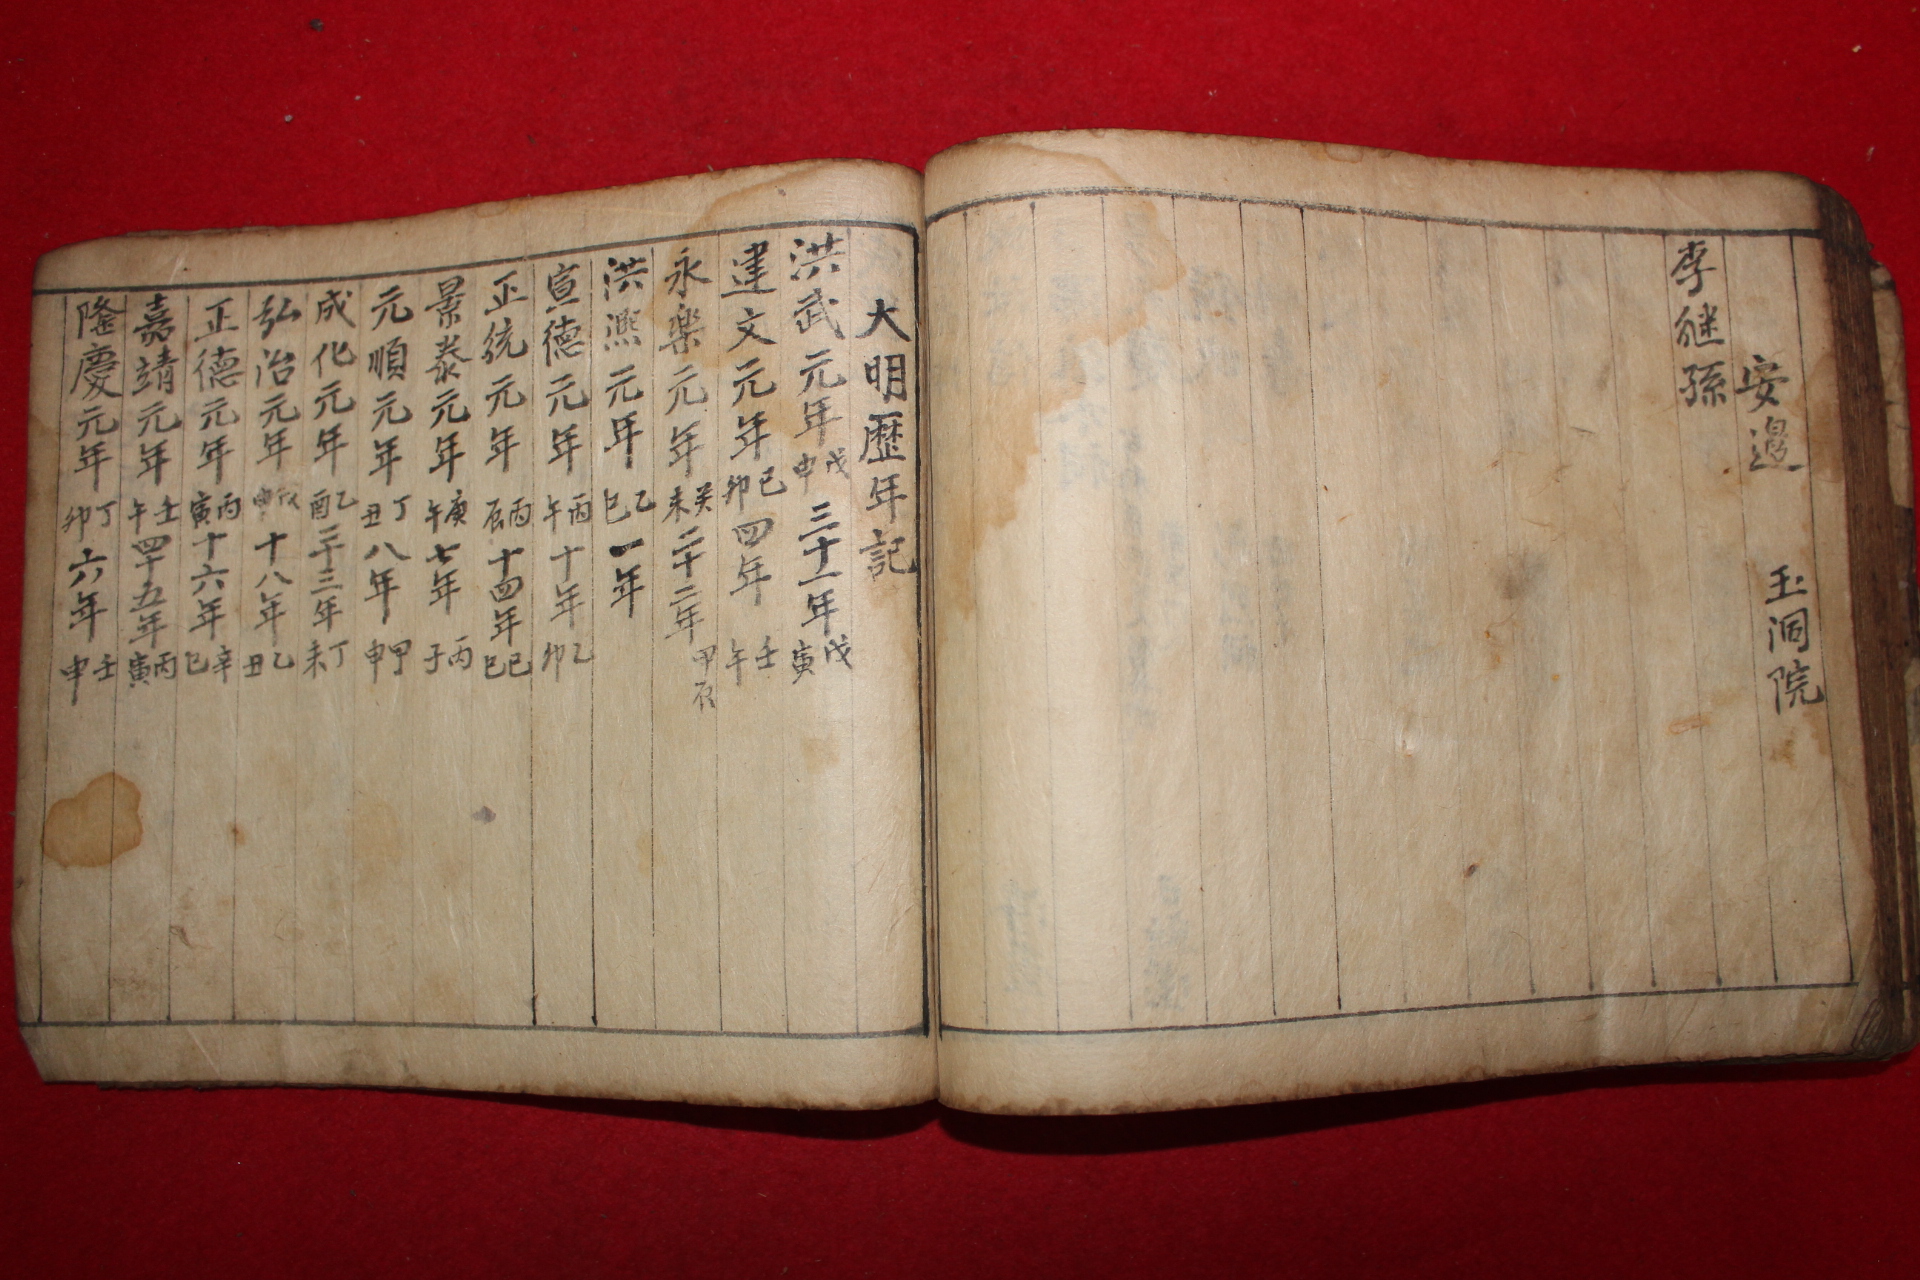 安邊 玉洞院
李継孫
大明歴年記
洪武元年戊申三十一年戊寅
建文元年己卯四年壬午
永楽元年癸未二十二年甲辰
洪熙元年乙巳一年
宣德元年丙午十年乙卯
正統元年丙辰十四年己巳
景泰元年庚午七年丙子
元順元年丁丑八年甲申
成化元年乙酉二十三年丁未
弘治元年戊申十八年乙丑
正德元年丙寅十六年辛巳
嘉靖元年壬午四十五年丙寅
隆慶元年丁卯六年壬申